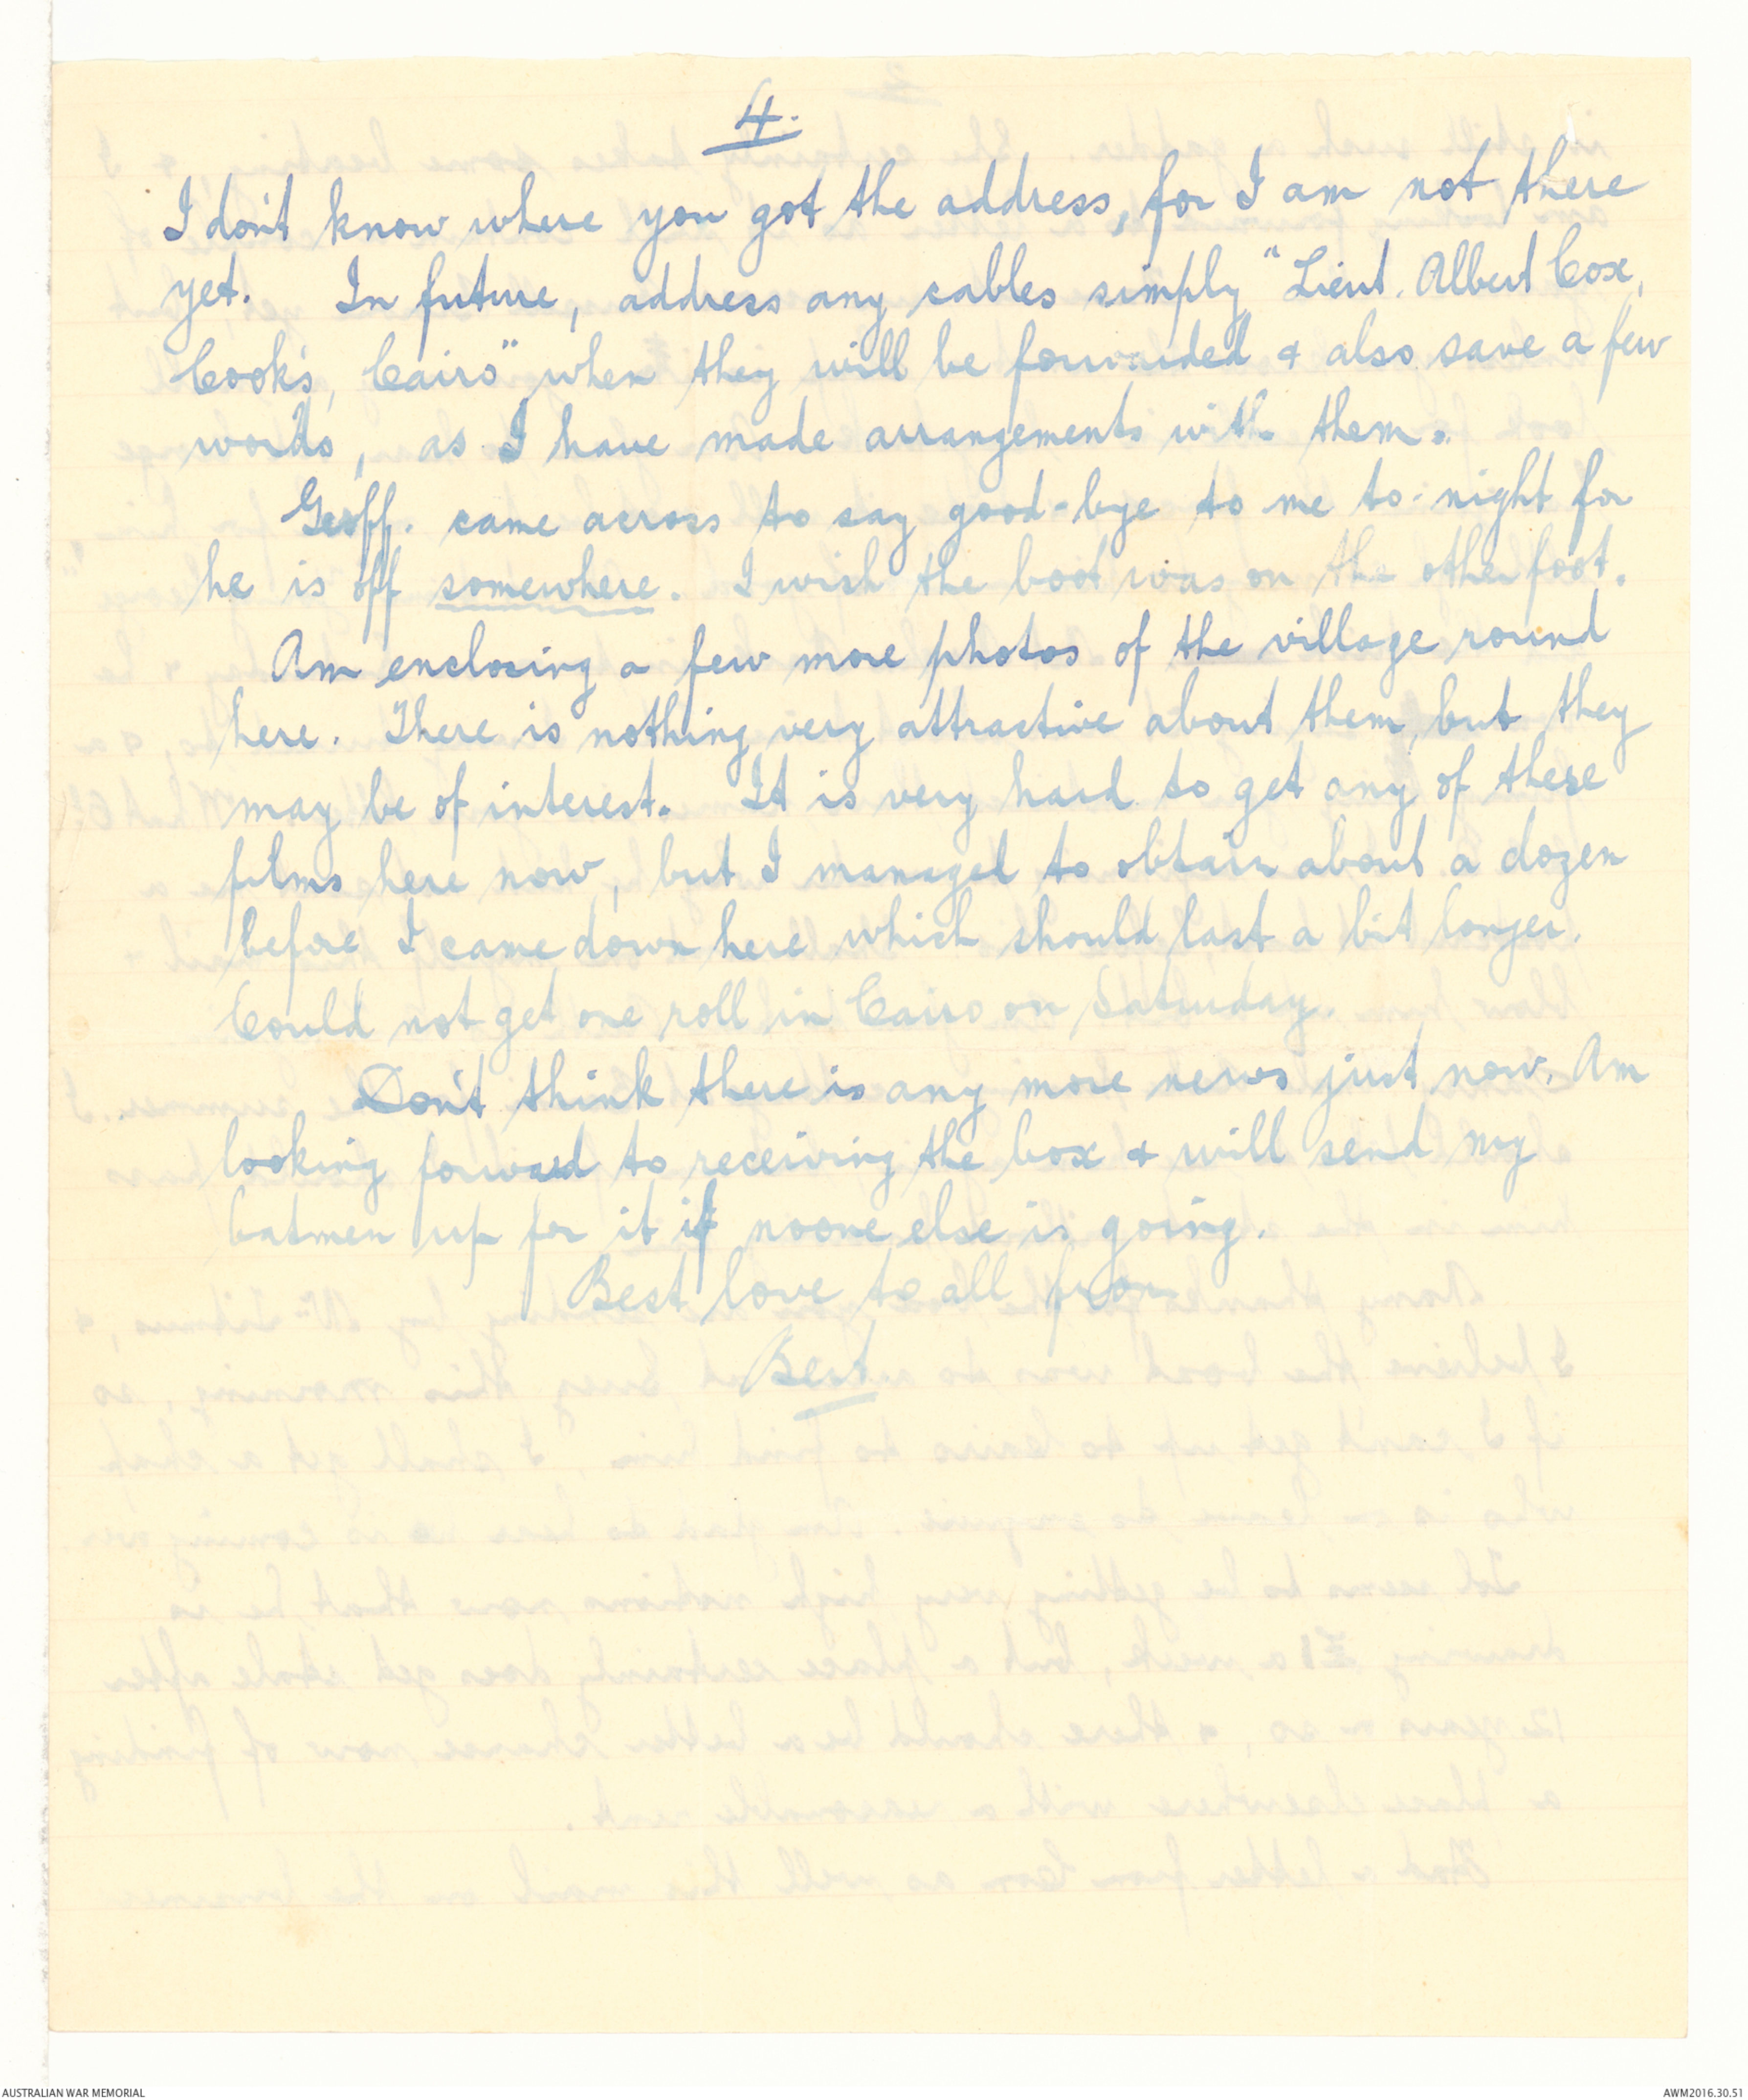 4.
I don't know where you got the address, for I am not there
yet. In future, address any cables simply "Lieut. Albert Cox,
Cook's, Cairo" when they will be forwarded & also save a few
words, as I have made arrangements with them.
Geoff. came across to say good-bye to me to-night for
he is off somewhere. I wish the boot was on the other foot.
Am enclosing a few more photos of the village round
here. There is nothing very attractive about them, but they
may be of interest. It is very hard to get any of these
films here now, but I managed to obtain about a dozen
before I came down here which should last a bit longer.
Could not get one roll in Cairo on Saturday.
Don't think there is any more news just now. Am
looking forward to receiving the box & will send my
batmen up for it if noone else is going.
Best love to all from
Bert.
AUSTRALIAN WAR MEMORIAL
AWM2016.30.51